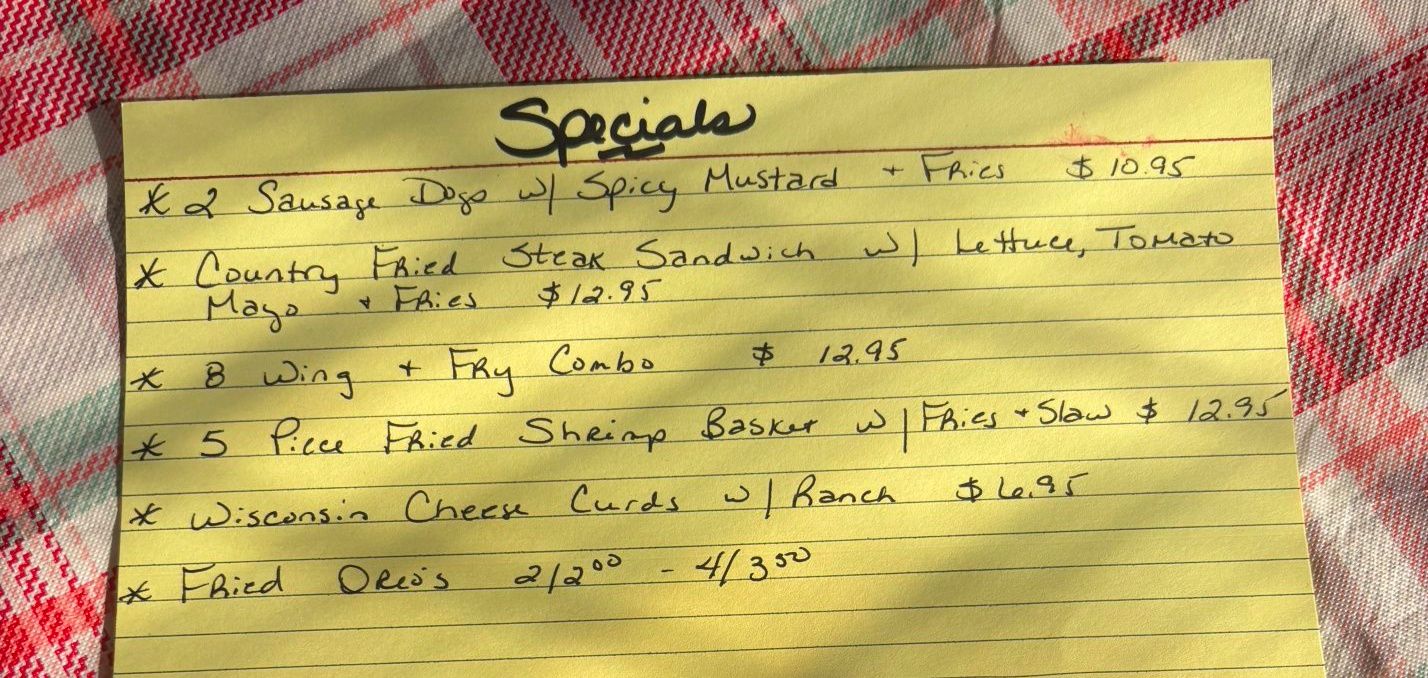 Specials
* 2 Sausage Dogs w/ Spicy Mustard + Fries $10.95
* Country Fried Steak Sandwich w/ Lettuce, Tomato
Mayo + Fries $12.95
* 8 Wing + Fry Combo $ 12.95
* 5 Piece Fried Shrimp Basket w/ Fries + Slaw $ 12.95
* Wisconsin Cheese Curds w/ Ranch $6.95
* Fried Oreo's 2/2⁰⁰ - 4/3⁵⁰